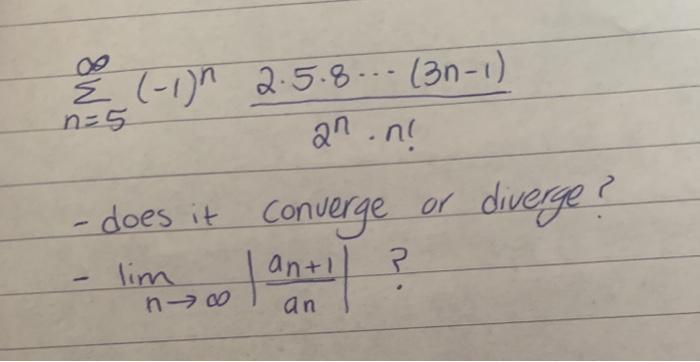 ∞
Σ (-1)ⁿ 2·5·8··· (3n-1)
n=5 2ⁿ · n!
- does it converge or diverge?
- lim | an+1 | ?
n→∞ an